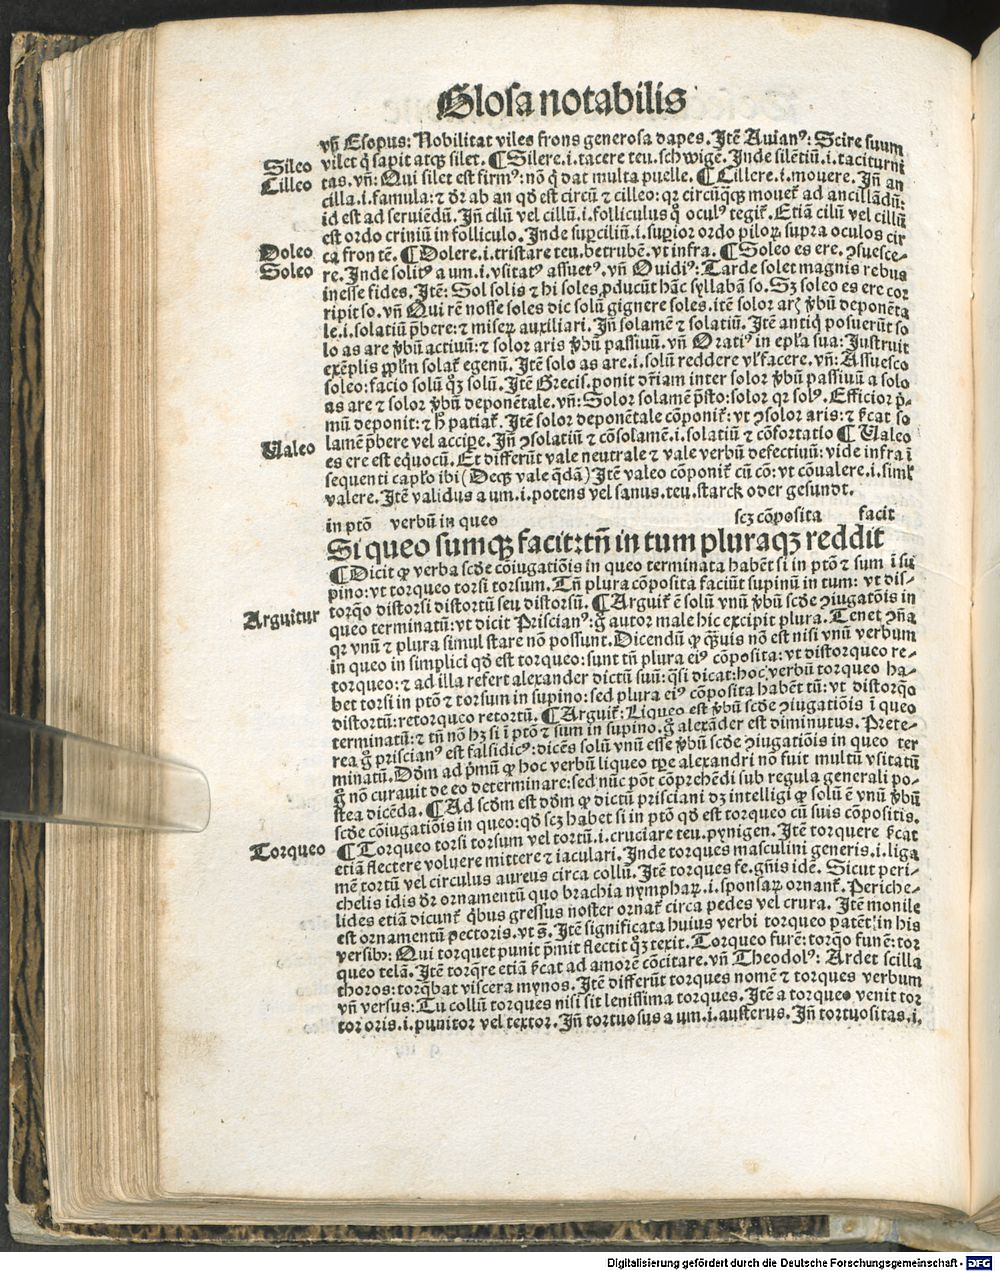 Glosa notabilis
vñ Esopus: Nobilitat viles frons generosa dapes. Itē Auianꝰ: Scire suum
Sileo vilet q̇ sapit atqꝫ silet. ¶Silere .i. tacere teu. schwigē. Inde silētiū .i. taciturni
Cilleo tas. vñ: Qui silet est firmꝰ: nō q̇ dat multa puelle. ¶Cillere .i. mouere. Iñ an
cilla .i. famula: ⁊ dr̄ ab an qd̄ est circū ⁊ cilleo: qꝛ circūqꝫ mouet̄ ad ancillādū:
id est ad seruiēdū. Iñ ciliū vel cillū .i. folliculus q̊ oculꝰ tegit̄. Etiā ciliū vel cillū
est ordo criniū in folliculo. Inde suꝑciliū .i. suꝑior ordo piloꝝ supra oculos cir
Doleo ca fron tē. ¶Dolere .i. tristare teu. betrubē. vt infra. ¶Soleo es ere. ꝯsuesce⸗
Soleo re. Inde solitꝰ a um .i. vsitatꝰ assuetꝰ. vñ Ouidiꝰ: Tarde solet magnis rebus
inesse fides. Itē: Sol solis ⁊ hi soles ꝓducūt hāc syllabā so. Sꝫ soleo es ere cor
ripit so. vñ Qui rē nosse soles dic solū gignere soles. itē solor arꝭ v̄bū deponēta
le .i. solatiū p̄bere: ⁊ miseꝝ auxiliari. Iñ solamē ⁊ solatiū. Itē antiq̇ posuerūt so
lo as are v̄bū actiuū: ⁊ solor aris v̄bū passiuū. vñ Oratiꝰ in epl̄a sua: Instruit
exēplis ppl̄m solat̄ egenū. Itē solo as are .i. solū reddere vl̓ facere. vñ: Assuesco
soleo: facio solū qꝫ solū. Itē Grecis. ponit dr̄iam inter solor v̄bū passiuū a solo
as are ⁊ solor v̄bū deponētale. vñ: Solor solamē p̄sto: solor qꝛ solꝰ. Efficior p̄⸗
mū deponit: ⁊ h̓ patiat̄. Itē solor deponētale cōponit̄: vt ꝯsolor aris: ⁊ s̄cat so
lamē p̄bere vel accipe. Iñ ꝯsolatiū ⁊ cōsolamē .i. solatiū ⁊ cōfortatio ¶Ualeo
Ualeo es ere est eq̇uocū. Et differūt vale neutrale ⁊ vale verbū defectiuū: vide infra ī
sequenti capl̓o ibi (Decꝫ vale q̄dā) Itē valeo cōponit̄ cū cō: vt cōualere .i. siml̓
valere. Itē validus a um .i. potens vel sanus. teu. starck oder gesundt.
in ptō verbū in queo scꝫ cōposita facit
Si queo sumqꝫ facit: tñ in tum pluraqꝫ reddit
¶Dicit ꝙ verba scd̄e cōiugatiōis in queo terminata habēt si in ptō ⁊ sum ī su
pino: vt torqueo torsi torsum. Tñ plura cōposita faciūt supinū in tum: vt dis⸗
torq̄o distorsi distortū seu distorsū. ¶Arguit̄ ē solū vnū v̄bū scd̄e ꝯiugatōis in
Arguitur queo terminatū: vt dicit Priscianꝰ: g̊ autor male hic excipit plura. Tenet ꝯñā
qꝛ vnū ⁊ plura simul stare nō possunt. Dicendū ꝙ q̄uis nō est nisi vnū verbum
in queo in simplici qd̄ est torqueo: sunt tñ plura eiꝰ cōposita: vt distorqueo re⸗
torqueo: ⁊ ad illa refert alexander dictū suū: q̄si dicat: hoc verbū torqueo ha⸗
bet torsi in ptō ⁊ torsum in supino: sed plura eiꝰ cōposita habēt tū: vt distorq̄o
distortū: retorqueo retortū. ¶Arguit̄: Liqueo est v̄bū scd̄e ꝯiugatiōis ī queo
terminatū: ⁊ tñ nō hꝫ si ī ptō ⁊ sum in supino. g̊ alexāder est diminutus. Prete⸗
rea g̊ priscianꝰ est falsidicꝰ: dicēs solū vnū esse v̄bū scd̄e ꝯiugatiōis in queo ter
minatū. Dōm ad p̄mū ꝙ hoc verbū liqueo tꝑe alexandri nō fuit multū vsitatū
g̊ nō curauit de eo determinare: sed nūc pōt cōprehēdi sub regula generali po⸗
stea dicēda. ¶Ad scd̄m est dōm ꝙ dictū prisciani dꝫ intelligi ꝙ solū ē vnū v̄bū
scd̄e cōiugatiōis in queo: qd̄ scꝫ habet si in ptō qd̄ est torqueo cū suis cōpositis.
Torqueo ¶Torqueo torsi torsum vel tortū .i. cruciare teu. pynigen. Itē torquere s̄cat
etiā flectere voluere mittere ⁊ iaculari. Inde torques masculini generis .i. liga
mē tortū vel circulus aureus circa collū. Itē torques fe. gn̄is idē. Sicut peri⸗
chelis idis dr̄ ornamentū quo brachia nymphaꝝ .i. sponsaꝝ ornant̄. Periche⸗
lides etiā dicunt̄ q̇bus gressus noster ornat̄ circa pedes vel crura. Itē monile
est ornamentū pectoris. vt s̄. Itē significata huius verbi torqueo patēt in his
versibꝫ: Qui torquet punit p̄mit flectit qꝫ texit. Torqueo furē: torq̄o funē: tor
queo telā. Itē torq̄re etiā s̄cat ad amorē cōcitare. vñ Theodolꝰ: Ardet scilla
thoros: torq̄bat viscera mynos. Itē differūt torques nomē ⁊ torques verbum
vñ versus: Tu collū torques nisi sit lenissima torques. Itē a torqueo venit tor
tor oris .i. punitor vel textor. Iñ tortuosus a um .i. austerus. Iñ tortuositas .i.
Digitalisierung gefördert durch die Deutsche Forschungsgemeinschaft - DFG